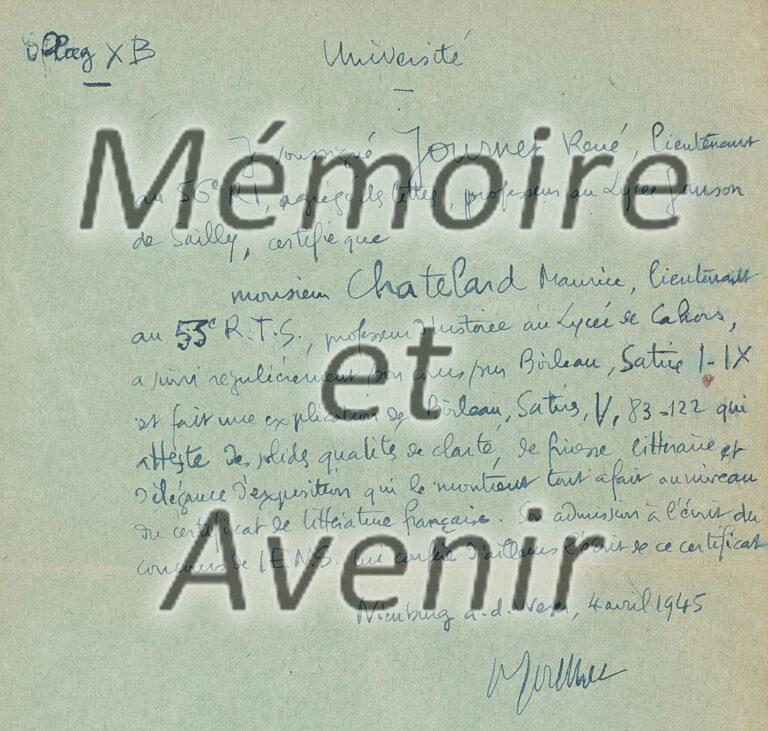 Oflag XB Université
Je soussigné Journet René, lieutenant
au 56e R.I., agrégé des lettres, professeur au Lycée Janson
de Sailly, certifie que
monsieur Chatelard Maurice, lieutenant
au 53e R.T.S., professeur d'histoire au Lycée de Cahors,
a suivi régulièrement son cours sur Boileau, Satire I-IX
et fait une explication de Boileau, Satires, V, 83-122 qui
atteste de solides qualités de clarté, de finesse littéraire et
d'élégance d'exposition qui le montrent tout à fait au niveau
du certificat de littérature française. Son admission à l'écrit du
concours de l'E.N.S. lui confère d'ailleurs l'écrit de ce certificat
Nienburg a.d. Weser, 4 avril 1945
Mémoire
et
Avenir